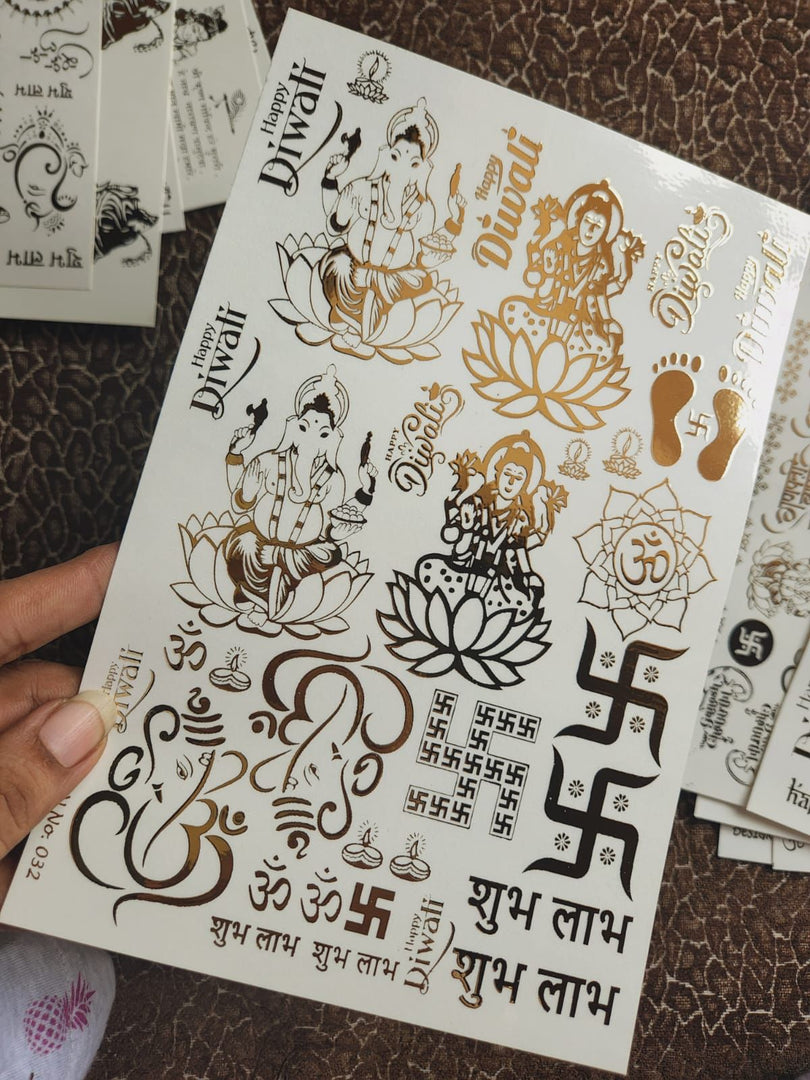 Happy
Diwali
Happy
Diwali
HAPPY
Diwali
Happy
Diwali
Happy
Diwali
HAPPY
Diwali
ॐ
ॐ
Happy
Diwali
No: 032
ॐ ॐ
शुभ लाभ शुभ लाभ
Happy
Diwali
शुभ लाभ
शुभ लाभ
शुभ लाभ
शुभ लाभ